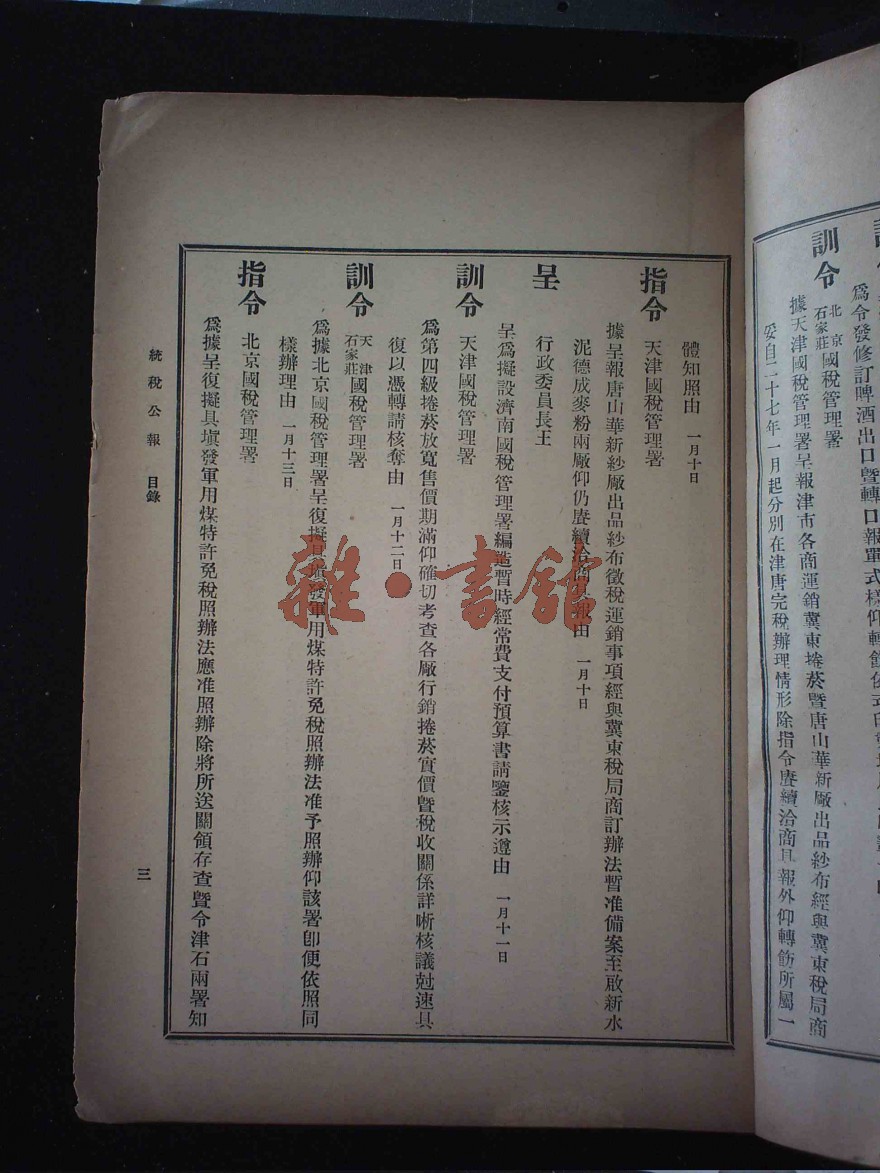 訓令 北京石家莊國稅管理署
據天津國稅管理署呈報津市各商運銷冀東捲菸暨唐山華新廠出品紗布經與冀東稅局商
妥自二十七年一月起分別在津唐完稅辦理情形除指令賡續洽商具報外仰轉飭所屬一
體知照由 一月十日
指令 天津國稅管理署
據呈報唐山華新紗廠出品紗布徵稅運銷事項經與冀東稅局商訂辦法暫准備案至啟新水
泥德成麥粉兩廠仰仍賡續洽商具報由 一月十日
呈 行政委員長王
呈為擬設濟南國稅管理署編造暫時經常費支付預算書請鑒核示遵由 一月十一日
訓令 天津國稅管理署
為第四級捲菸放寬售價期滿仰確切考查各廠行銷捲菸實價暨稅收關係詳晰核議尅速具
復以憑轉請核奪由 一月十二日
訓令 天津石家莊國稅管理署
為據北京國稅管理署呈復擬具填發軍用煤特許免稅照辦法准予照辦仰該署卽便依照同
樣辦理由 一月十三日
指令 北京國稅管理署
為據呈復擬具填發軍用煤特許免稅照辦法應准照辦除將所送關領存查暨令津石兩署知
統稅公報 目錄
三
雜·書館